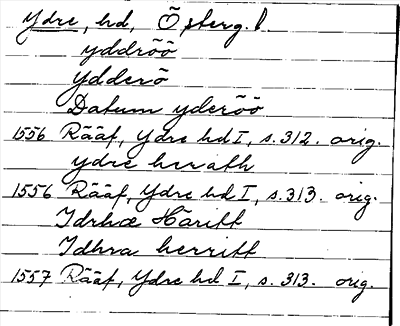 Ydre, hd, Österg. l.
yddröö
ydderö
Datum yderöö
1556 Rääf, Ydre hd I, s. 312. orig.
ydre herath
1556 Rääf, Ydre hd I, s. 313. orig.
Idrhæ Häritt
Idhra herritt
1557 Rääf, Ydre hd I, s. 313. orig.